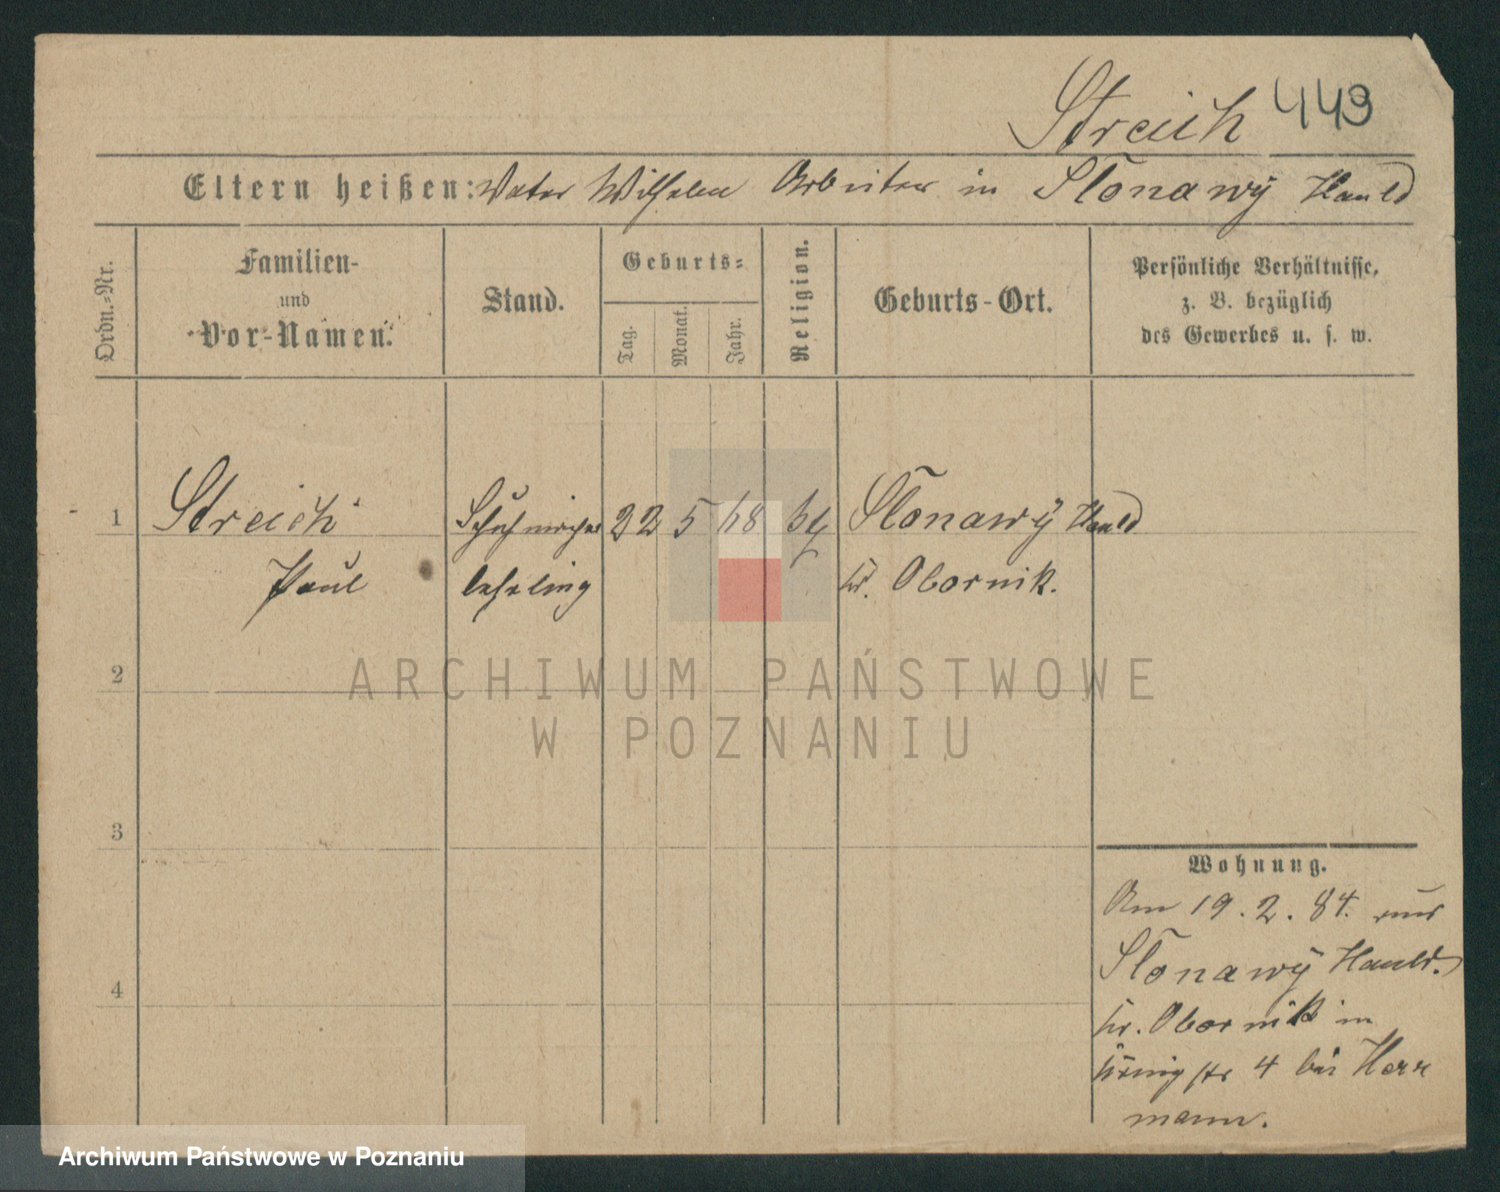 Streich 449
Eltern heißen: Vater Wilhelm Arbeiter in Slonawÿ Hauld
Ordn.-Nr.
Familien-
und
Vor-Namen.
Stand.
Geburts-
Tag.
Monat.
Jahr.
Religion.
Geburts-Ort.
Persönliche Verhältnisse,
z. B. bezüglich
des Gewerbes u. s. w.
1 Streich Schuhmacher 22 5 68 Slonawÿ Hauld
Paul lehrling Kr. Obornik.
ARCHIWUM PAŃSTWOWE
W POZNANIU
2
3
4
Wohnung.
Am 19. 2. 84. aus
Slonawÿ Hauld.
Kr. Obornik in
Königstr 4 bei Herr
mann.
Archiwum Państwowe w Poznaniu